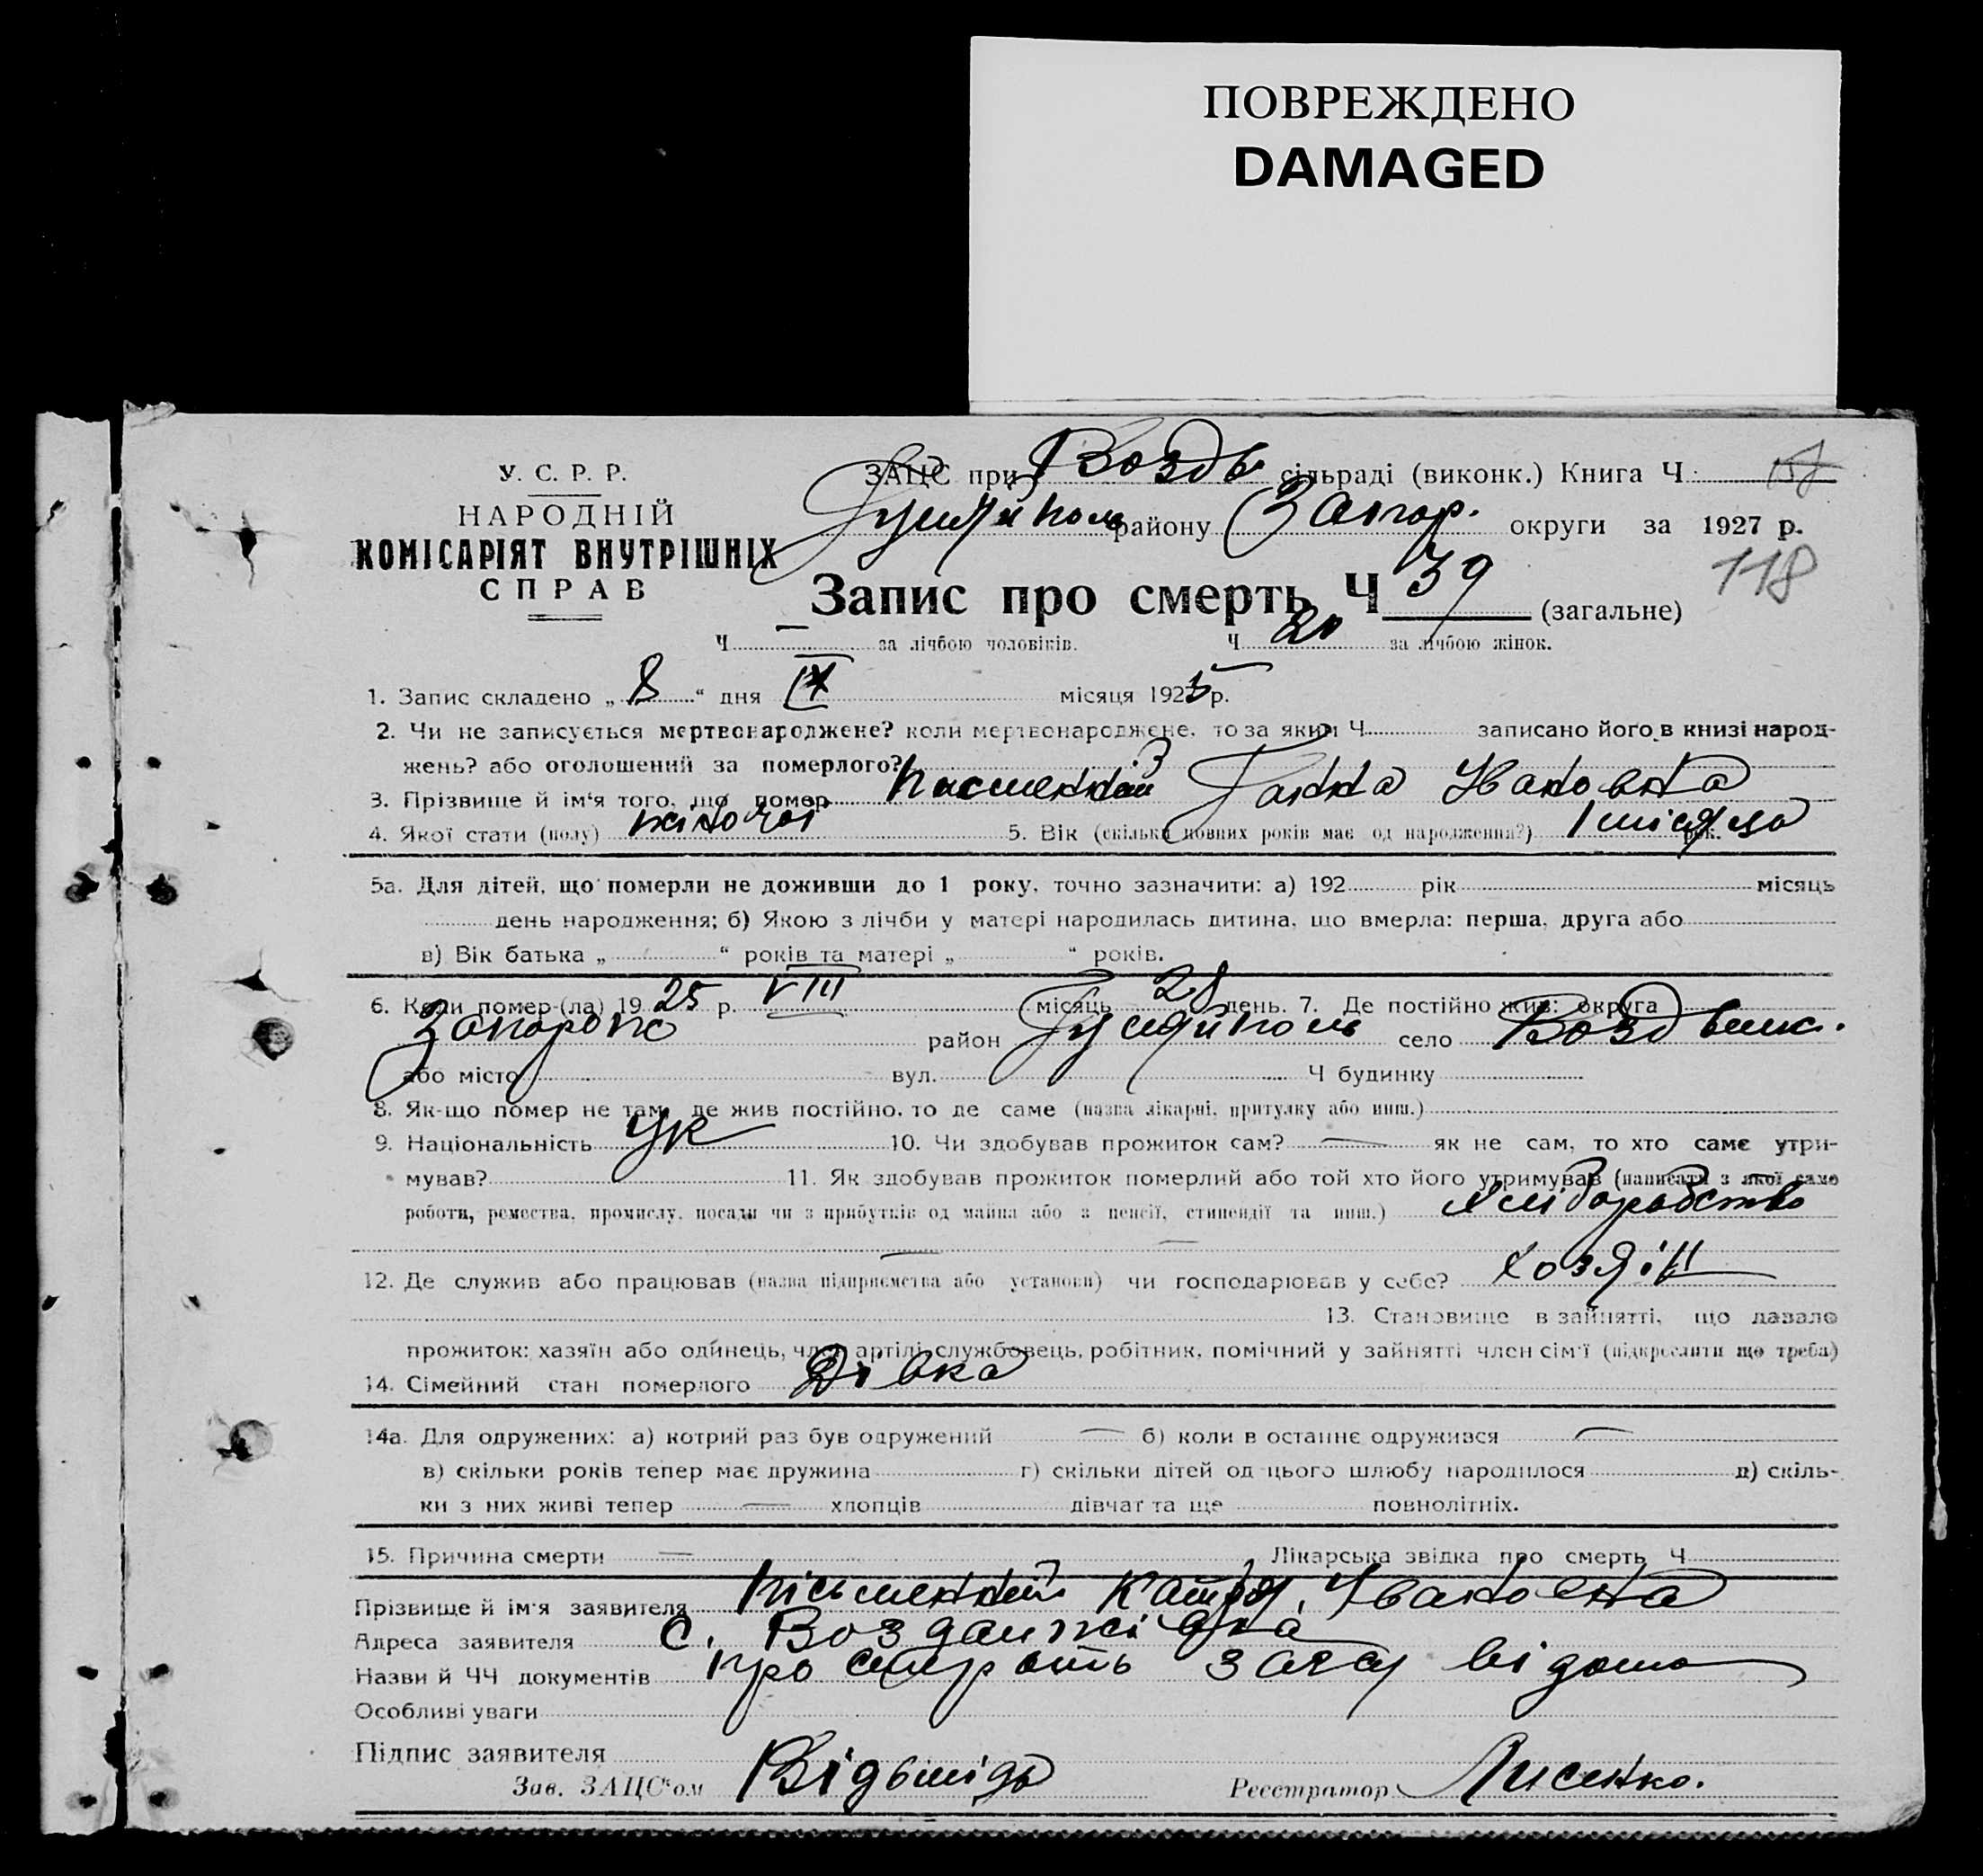 ПОВРЕЖДЕНО
DAMAGED
У. С. Р. Р.
НАРОДНІЙ
КОМІСАРІЯТ ВНУТРІШНІХ
СПРАВ
ЗАЦС при Воздв. сільраді (виконк.) Книга Ч
району Запор. округи за 1927 р.
118
Запис про смерть Ч 39 (загальне)
Ч за лічбою чоловіків. Ч 20 за лічбою жінок.
1. Запис складено „ 8 “ дня IX місяця 1925 р.
2. Чи не записується мертвонароджене? коли мертвонароджене, то за яким Ч записано його в книзі народ-
жень? або оголошений за померлого?
3. Прізвище й ім‘я того, що помер Ганна Івановна
4. Якої стати (полу) жіночої 5. Вік (скільки повних років має од народження?) 1 місяць рок.
5а. Для дітей, що померли не доживши до 1 року, точно зазначити: а) 192 рік місяць
день народження; б) Якою з лічби у матері народилась дитина, що вмерла: перша, друга або
в) Вік батька „ “ років та матері „ “ років.
6. Коли помер-(ла) 19 25 р. VIII місяць 28 день. 7. Де постійно жив: округа
район село Воздвиж.
або місто вул. Ч будинку
8. Як-що помер не там, де жив постійно, то де саме (назва лікарні, притулку або инш.)
9. Національність Ук 10. Чи здобував прожиток сам? — як не сам, то хто саме утри-
мував? 11. Як здобував прожиток померлий або той хто його утримував (написати з якої саме
роботи, ремества, промислу, посади чи з прибутків од майна або з пенсії, стипендії та инш.) хліборобство
12. Де служив або працював (назва підприємства або установи) чи господарював у себе? хозяїн
13. Становище в зайнятті, що давало
прожиток: хазяїн або одинець, член артілі, службовець, робітник, помічний у зайнятті член сім‘ї (підкреслити що треба)
14. Сімейний стан померлого Дівка
14а. Для одружених: а) котрий раз був одружений — б) коли в останнє одружився —
в) скільки років тепер має дружина г) скільки дітей од цього шлюбу народилося д) скіль-
ки з них живі тепер — хлопців дівчат та ще повнолітніх.
15. Причина смерти — Лікарська звідка про смерть Ч
Прізвище й ім‘я заявителя Катря Івановна
Адреса заявителя с.
Назви й ЧЧ документів про смерть відома
Особливі уваги
Підпис заявителя
Зав. ЗАЦС‘ом Реєстратор Лисенко.